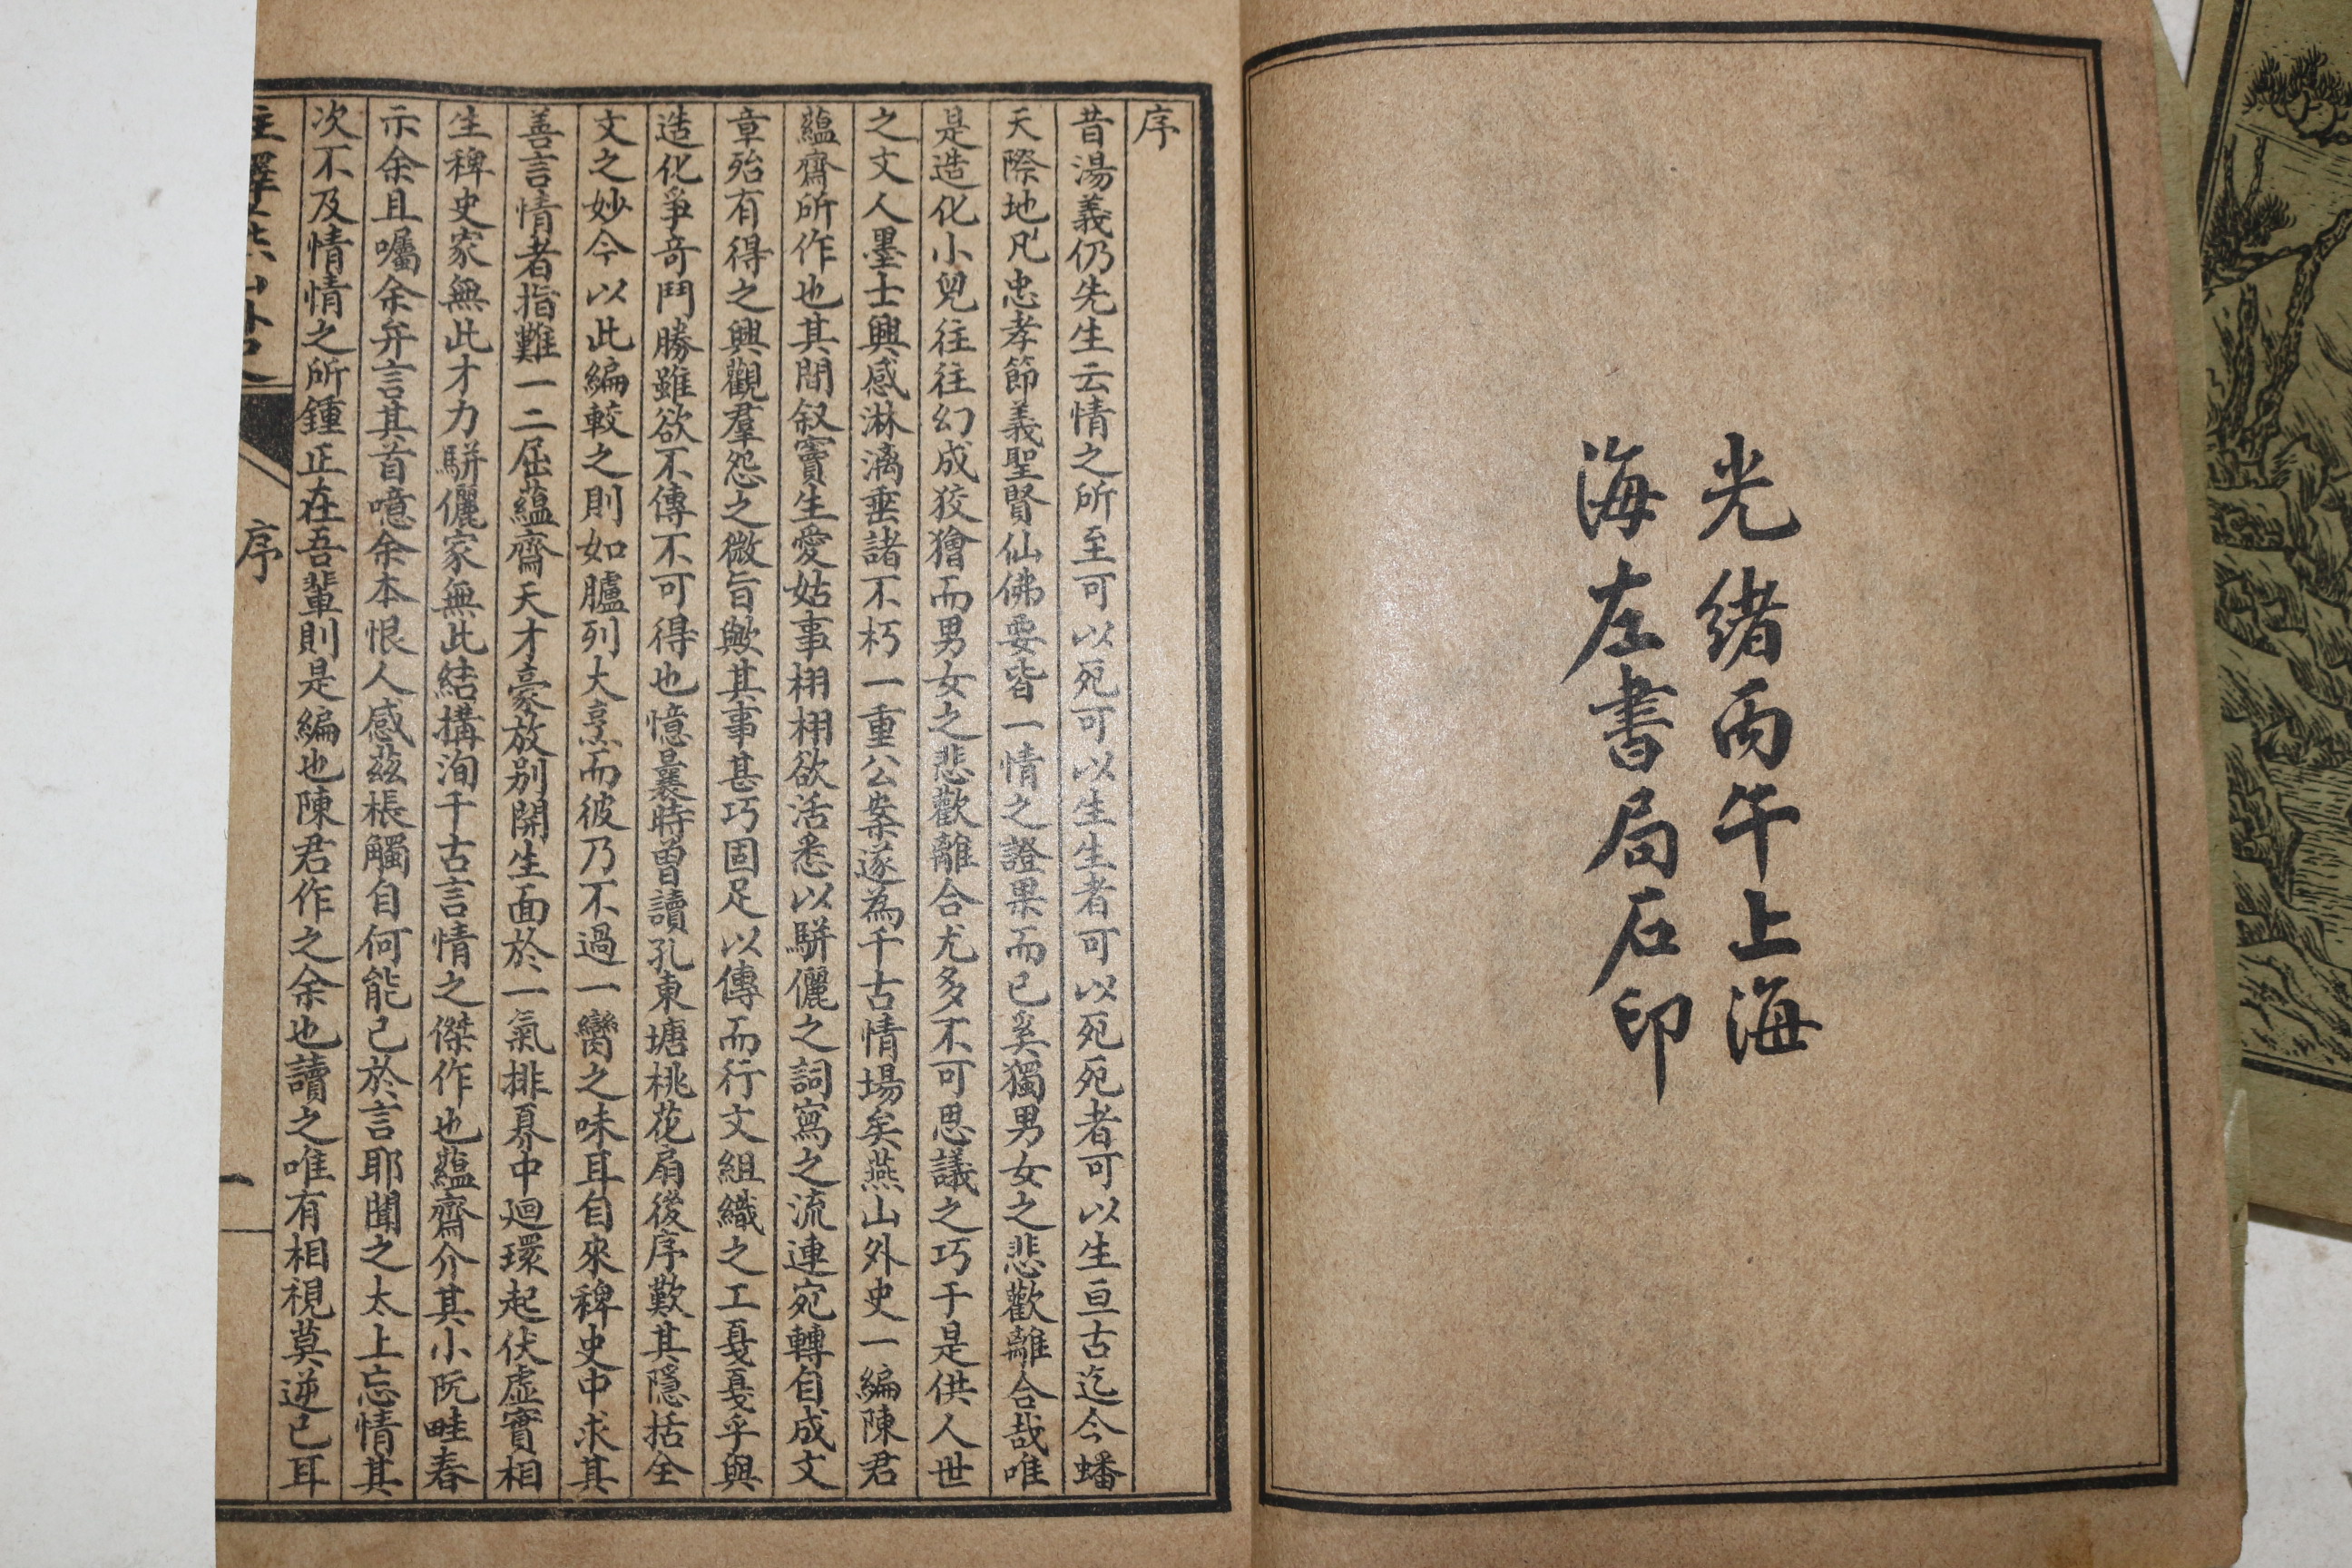 光緒丙午上海
海左書局石印
序
昔湯義仍先生云情之所至可以死可以生生者可以死死者可以生亘古迄今蟠
天際地凡忠孝節義聖賢仙佛要皆一情之證果而已奚獨男女之悲歡離合哉唯
是造化小兒往往幻成狡獪而男女之悲歡離合尤多不可思議之巧于是供人世
之文人墨士興感淋漓垂諸不朽一重公案遂為千古情場矣燕山外史一編陳君
蘊齋所作也其間叙竇生愛姑事栩栩欲活悉以駢儷之詞寫之流連宛轉自成文
章殆有得之興觀羣怨之微旨歟其事甚巧固足以傳而行文組織之工戛戛乎與
造化爭奇鬥勝雖欲不傳不可得也憶曩時曾讀孔東塘桃花扇後序歎其隱括全
文之妙今以此編較之則如臚列大烹而彼乃不過一臠之味耳自來稗史中求其
善言情者指難一二屈蘊齋天才豪放別開生面於一氣排奡中迴環起伏虛實相
生稗史家無此才力駢儷家無此結構洵千古言情之傑作也蘊齋介其小阮畦春
示余且囑余弁言其首噫余本恨人感茲棖觸自何能已於言耶聞之太上忘情其
次不及情情之所鍾正在吾輩則是編也陳君作之余也讀之唯有相視莫逆已耳
序
一